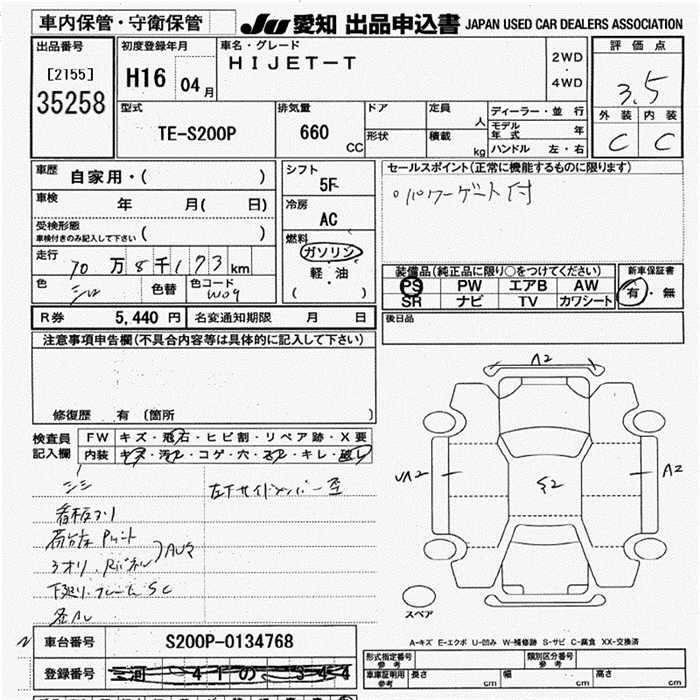 車内保管・守衛保管
JU 愛知 出品申込書 JAPAN USED CAR DEALERS ASSOCIATION
出品番号
[2155]
35258
初度登録年月
H16 04月
車名・グレード
HIJET-T
2WD
・
4WD
評価点
3.5
外装 内装
C C
型式
TE-S200P
排気量
660 CC
ドア
形状
定員 人
積載 kg
ディーラー・並行
モデル年式 年
ハンドル 左・右
車歴
自家用・( )
車検
年 月( 日)
受検形態
車検付きのみ記入して下さい ( )
走行
万 8千173km
色
色替
色コード
W09
シフト
5F
冷房
AC
燃料
ガソリン
軽・油
( )
セールスポイント(正常に機能するものに限ります)
パワーゲート付
装備品(純正品に限り○をつけてください)
PS PW エアB AW
SR ナビ TV カワシート
新車保証書
有・無
R券 5,440円 名変通知期限 月 日
後日品
注意事項申告欄(不具合内容等は具体的に記入して下さい)
修復歴 有 (箇所 )
検査員
記入欄
FW キズ・飛石・ヒビ割・リペア跡・X要
内装 キズ・汚レ・コゲ・穴・スレ・キレ・破レ
A2
A2
A2
S2
スペア
A-キズ E-エクボ U-凹み W-補修跡 S-サビ C-腐食 XX-交換済
車台番号 S200P-0134768
登録番号
型式指定番号
参考
類別区分番号
参考
車庫証明用
参考
長さ cm 幅 cm 高さ cm